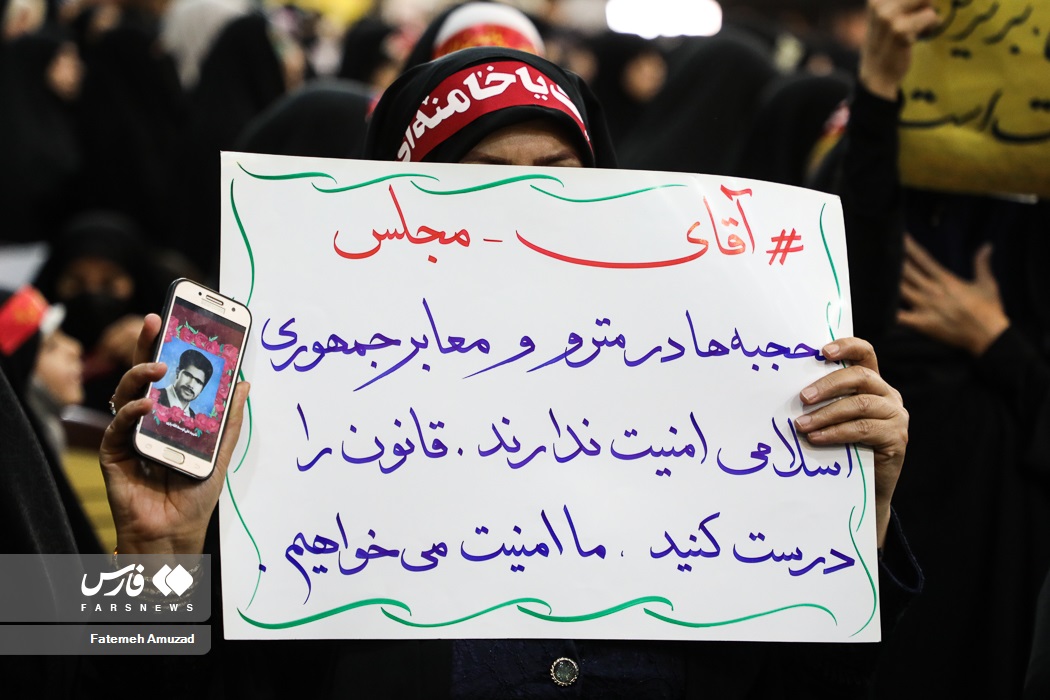 یا خامنه‌ای
#آقای - مجلس
محجبه‌ها در مترو و معابر جمهوری
اسلامی امنیت ندارند . قانون را
درست کنید . ما امنیت می‌خواهیم .
فارس
FARSNEWS
Fatemeh Amuzad